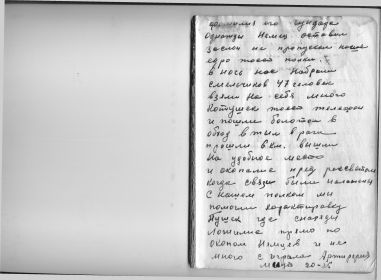 его
однажды Немец оставил
заслон не пропускал наше
едро нашего полка.
в ночь нас набрали
смельчаков 47 человек
взяли на себя много
катушек нашего телефон
и пошли болотой в
обход в тыл врага
прошли 8 км. вышли
на удобное место
и окопалис пред рассветом
когда связи были налажены
с нашем полком мы
помогли коректировку
Пушек где снаряды
ложились прямо по
окопом Немцев и их
много с играла Артилерия